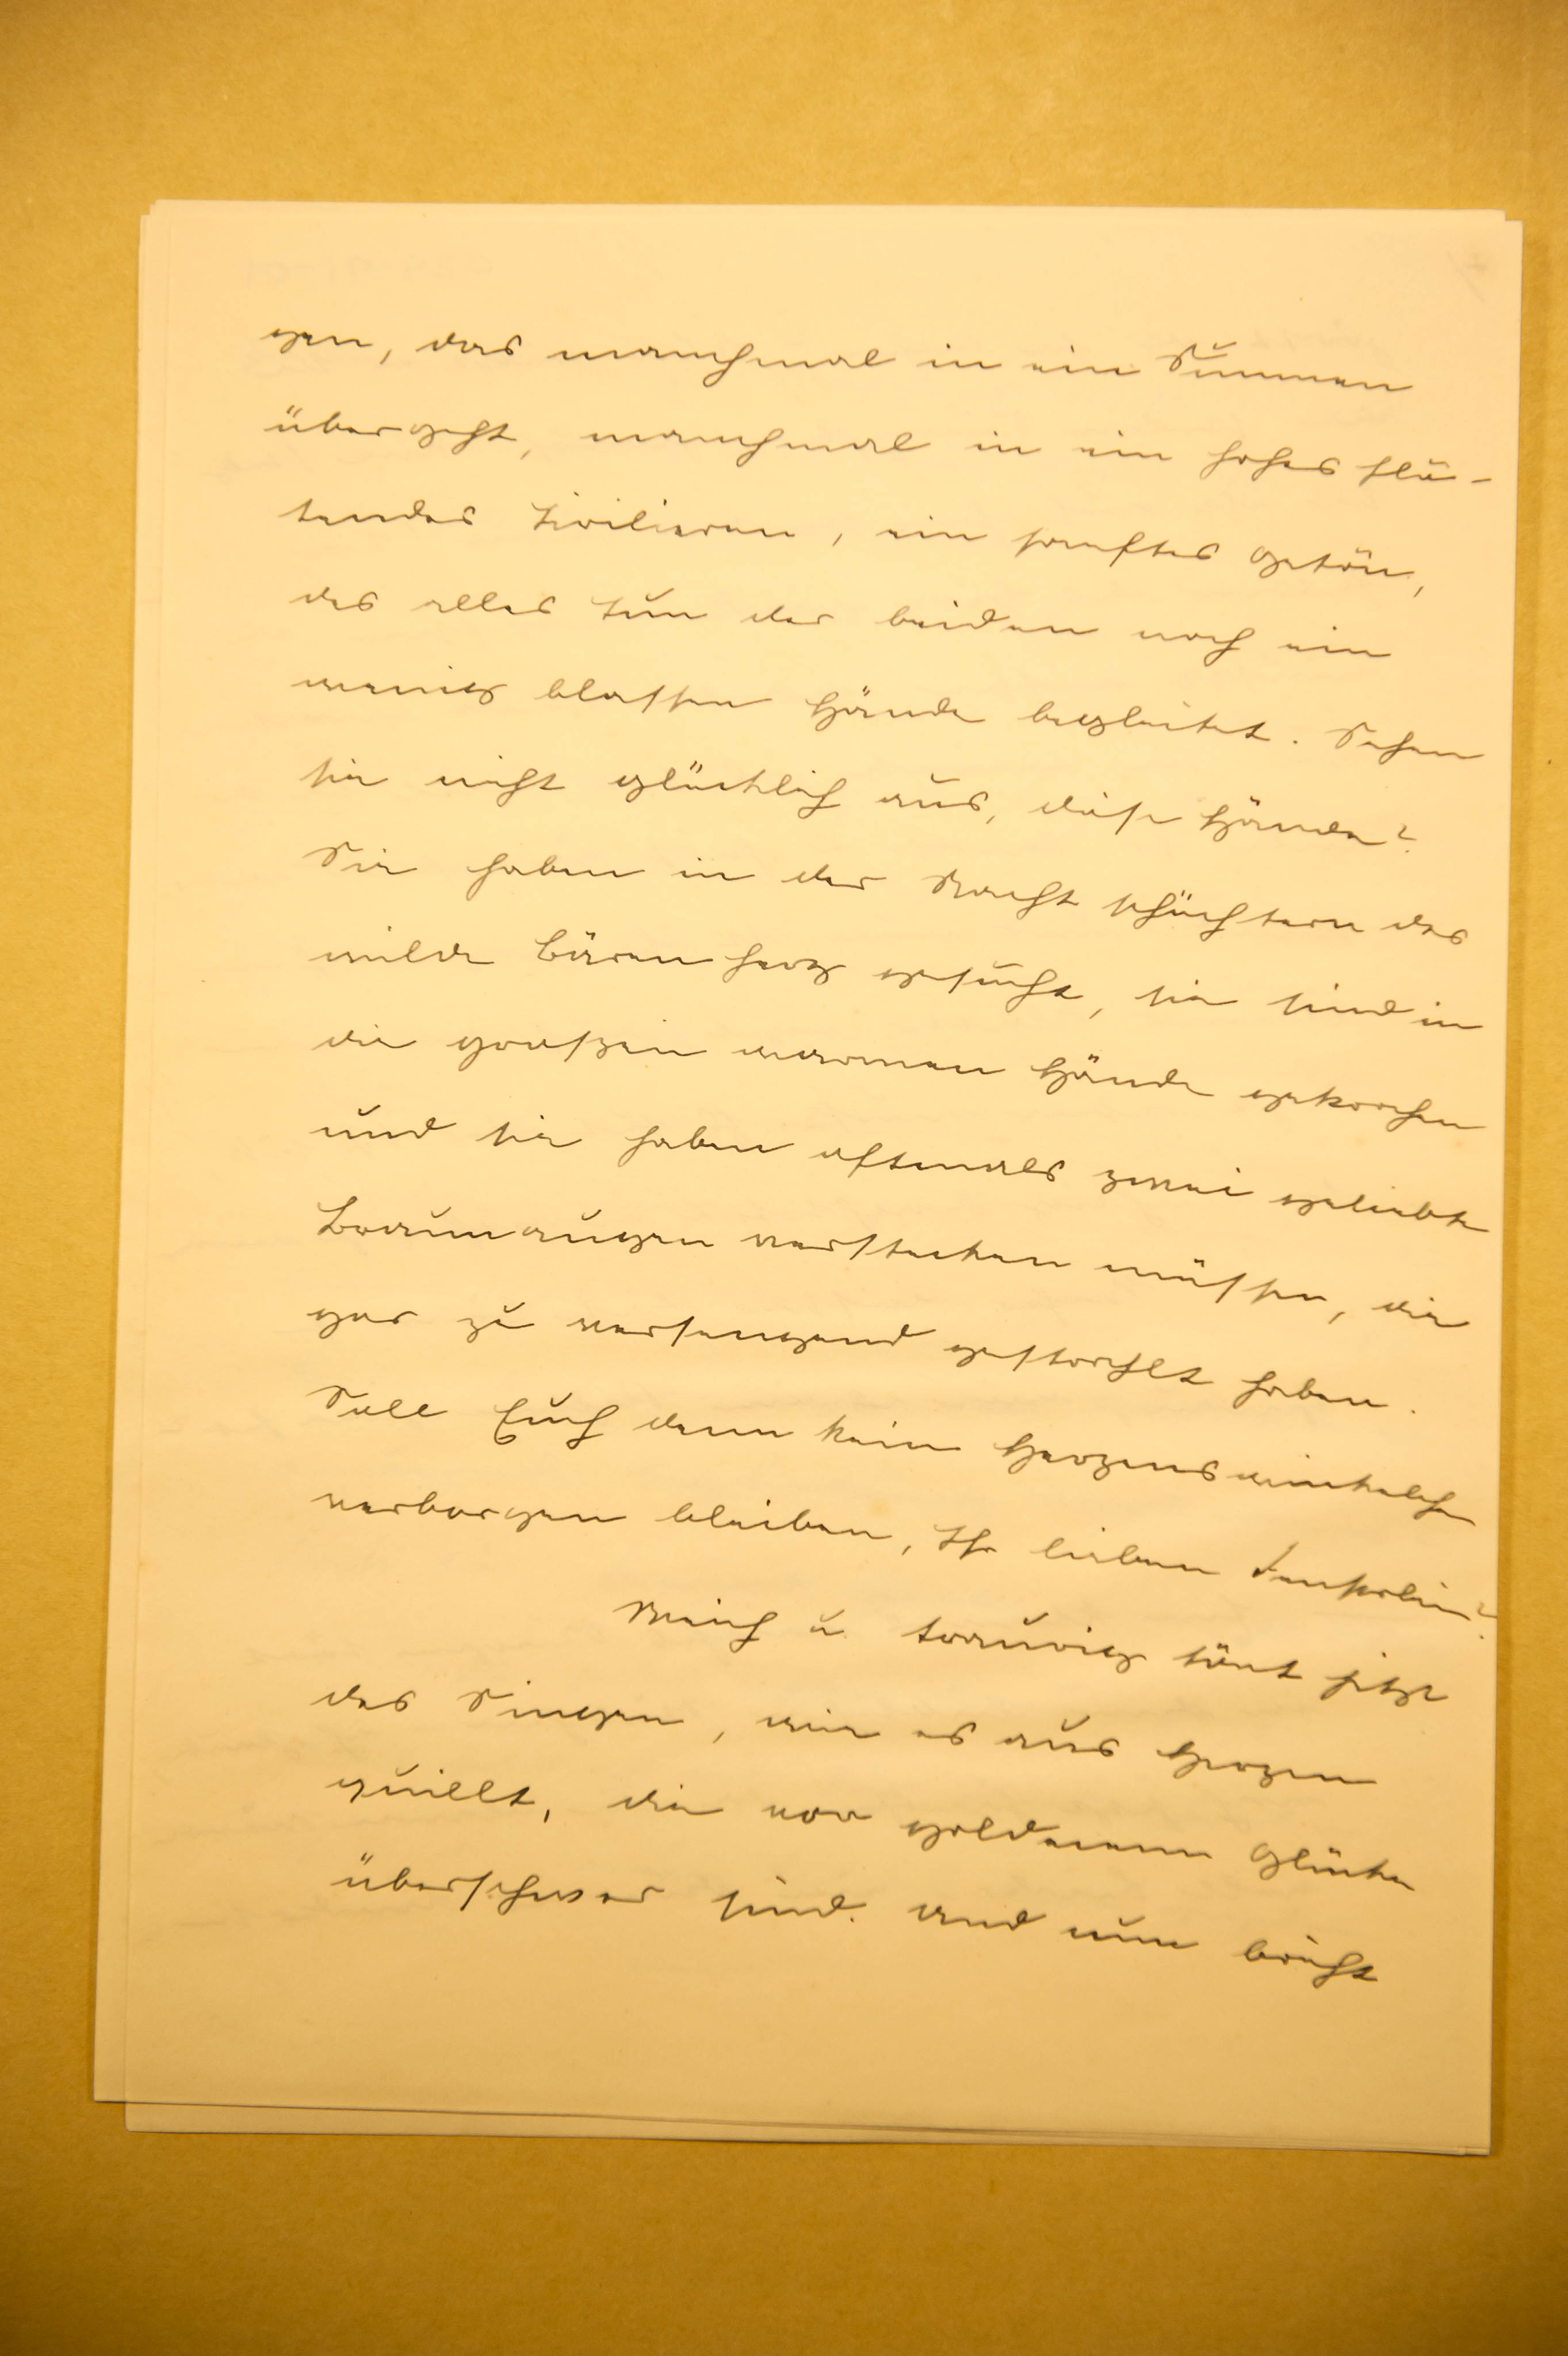 gen, das manchmal in ein Summen
übergeht, manchmal in ein hohes flö-
tendes Tirilieren, ein sanftes Getön,
das alles Tun der beiden noch ein
wenig blassen Hände begleitet. Sehen
sie nicht glücklich aus, diese Hände?
Sie haben in der Nacht schüchtern das
wilde Bärenherz gesucht, sie sind in
die großen warmen Hände gekrochen
und sie haben oftmals zwei geliebte
Braunaugen verstecken müssen, die
gar zu versengend gestrahlt haben.
Soll Euch denn kein Herzenswinkelchen
verborgen bleiben, Ihr lieben
Weich u. traurig tönt jetzt
das Singen, wie es aus Herzen
quillt, die vor goldenem Glücke
überschwer sind. Und nun bricht